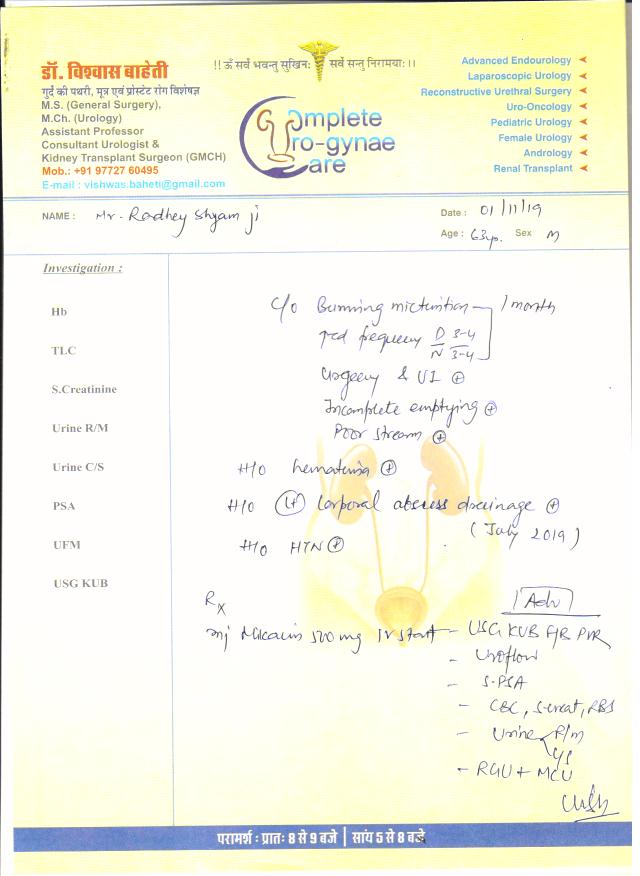 !! ॐ सर्वे भवन्तु सुखिनः सर्वे सन्तु निरामयाः।।
डॉ. विश्वास बाहेती
गुर्दे की पथरी, मूत्र एवं प्रोस्टेट रोग विशेषज्ञ
M.S. (General Surgery),
M.Ch. (Urology)
Assistant Professor
Consultant Urologist &
Kidney Transplant Surgeon (GMCH)
Mob.: +91 97727 60495
E-mail : vishwas.baheti@gmail.com
Complete
Uro-gynae
Care
Advanced Endourology
Laparoscopic Urology
Reconstructive Urethral Surgery
Uro-Oncology
Pediatric Urology
Female Urology
Andrology
Renal Transplant
NAME : Mr. Radhey Shyam ji
Date : 01/11/19
Age : 63yr. Sex M
Investigation :
Hb
TLC
S.Creatinine
Urine R/M
Urine C/S
PSA
UFM
USG KUB
C/o Burning micturition - 1 month
↑ed frequency D 3-4
N 3-4
Urgency & UI ⊕
Incomplete emptying ⊕
Poor stream ⊕
H/O hematuria ⊕
H/O Lt corporal abscess drainage ⊕
(July 2019)
H/O HTN ⊕
Rx
Adv
inj 500 mg IV stat
- USG KUB PVR
- Uroflow
- S-PSA
- CBC, S-creat, RBS
- Urine R/m
C/S
- RGU + MCU
परामर्श : प्रातः 8 से 9 बजे | सांय 5 से 8 बजे